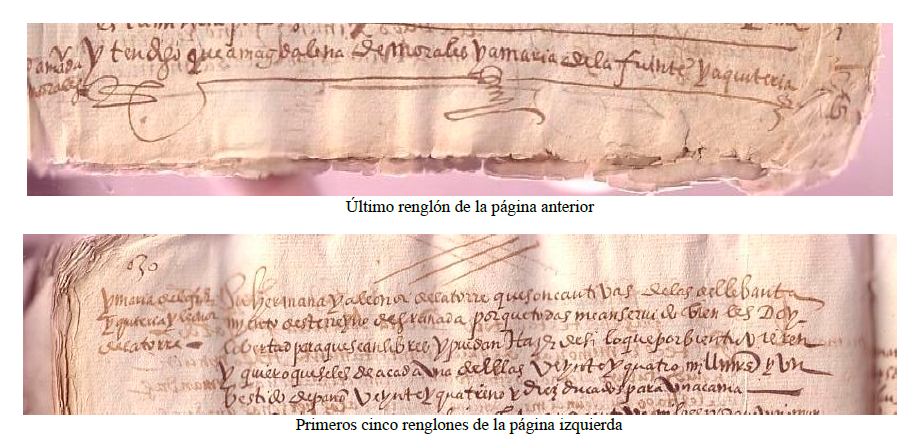 y tengo que a magdalena de morales y a maria de la fuente y a quiteria
Último renglón de la página anterior
630
y maria de la
y quiteria y leonor
de la torre
su hermana y a leonor de la torre que son cautivas de las del lebanta
miento deste reyno de granada porque todas me an servido bien les Doy
libertad para que sean libres y puedan Hazer de si lo que por bien tuvieren
y quiero que se les de a cada una dellas veynte y quatro mill mrs y un
bestido de paño veynte y quatrino y diez ducados para una cama
Primeros cinco renglones de la página izquierda